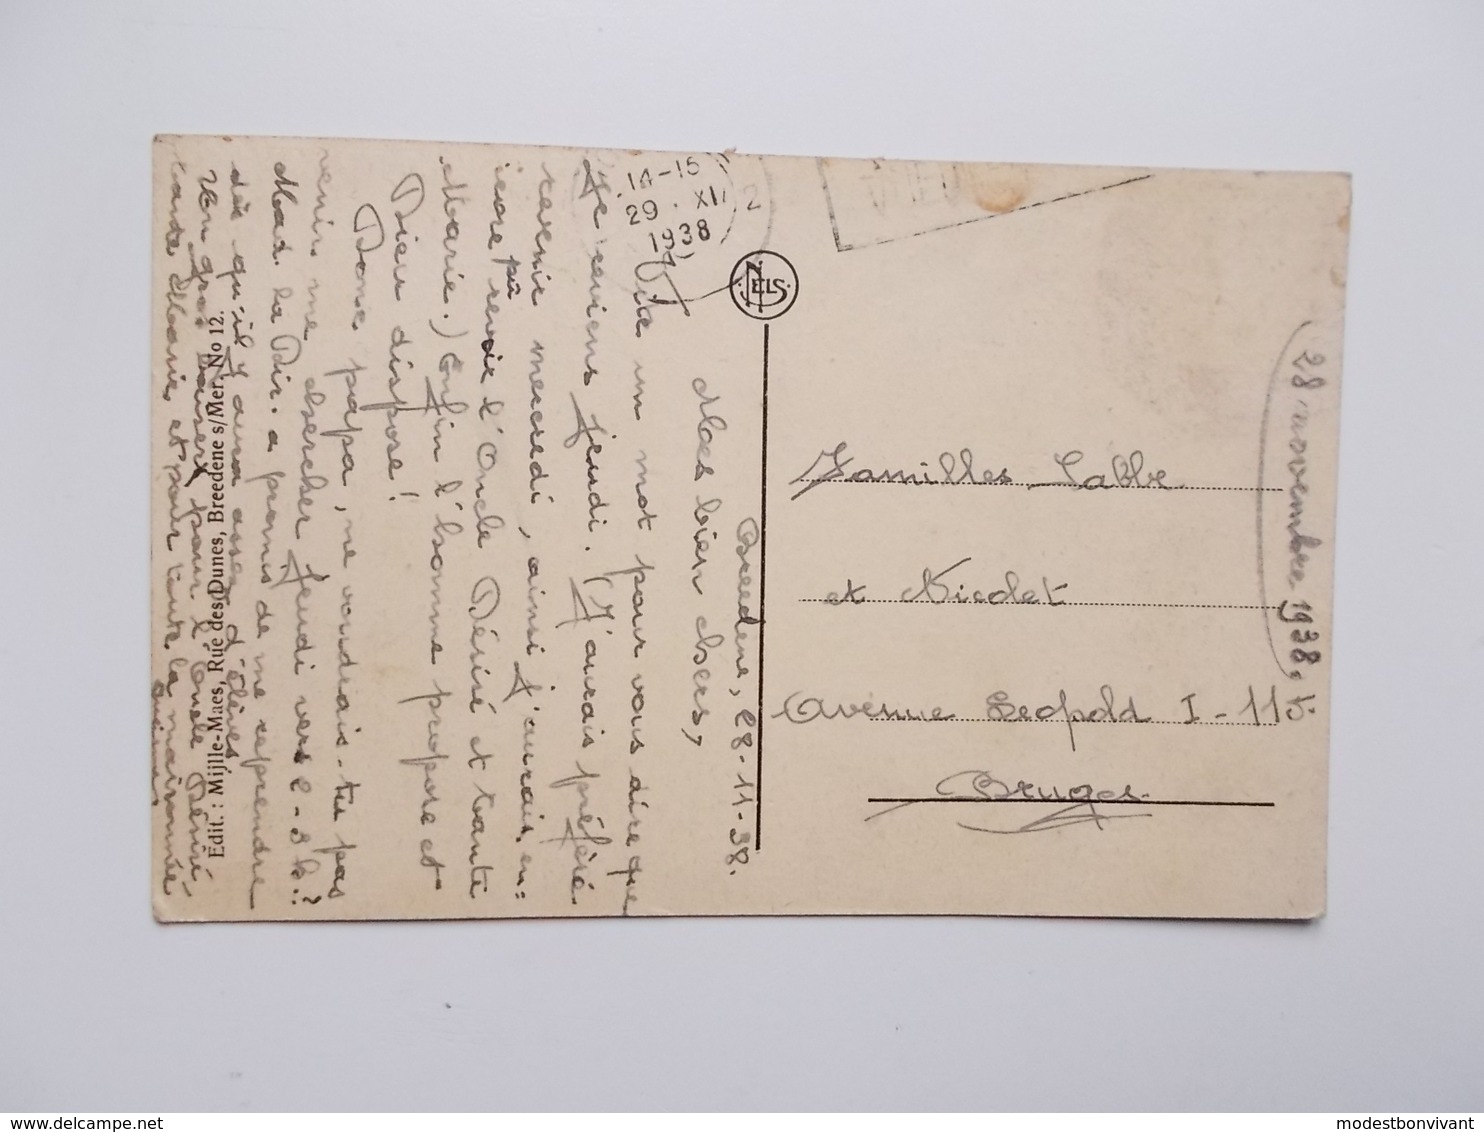 Breedene, 28-11-38.
Mes bien chers,
Vite un mot pour vous dire que
je reviens jeudi. (J'aurais préféré
revenir mercredi, ainsi j'aurais en=
core pû revoir l'Oncle Désiré et tante
Marie.) Enfin l'homme propose et
Dieu dispose!
Donc papa, ne voudrais-tu pas
venir me chercher jeudi vers 2-3h.?
Mad. la Dir. a promis de me reprendre
dès qu'il y aura assez d'élèves.
Un gros baiser pour l'Oncle Désiré
tante Marie, et pour toute la maisonnée
Edit.: Mijlle-Maes, Rue des Dunes, Breedene s/Mer. No 12.
14-15
29. XI
1938
2
NELS
Familles Labbe
et Nicolet
Avenue Leopold I - 115
Bruges.
28 novembre 1938.
delcampe.net
modestbonvivant